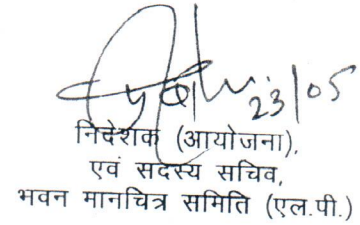 23/05
निदेशक (आयोजना),
एवं सदस्य सचिव,
भवन मानचित्र समिति (एल.पी.)